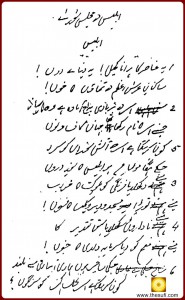 ابلیس کی مجلس شوریٰ
ابلیس
یہ عناصر کا پرانا کھیل! یہ دنیائے دوں!
ساکنان عرش اعظم کی تمناؤں کا خوں!
2 اس کی بربادی پہ آج آمادہ ہے وہ کارساز
جس نے اس کا نام رکھا تھا جہان کاف و نوں
5 کون کر سکتا ہے اس کی آتش سوزاں کو سرد
جس کے ہنگاموں میں ہو ابلیس کا سوز دروں
3 میں نے دکھلایا فرنگی کو ملوکیت کا خواب
میں نے توڑا مسجد و دیر و کلیسا کا فسوں!
4 میں نے ناداروں کو سکھلایا سبق تقدیر کا
میں نے منعم کو دیا سرمایہ داری کا جنوں!
6 جس کی شاخیں ہوں ہماری آبیاری سے بلند
کون کر سکتا ہے اس نخل کہن کو سرنگوں!
www.thesufi.com